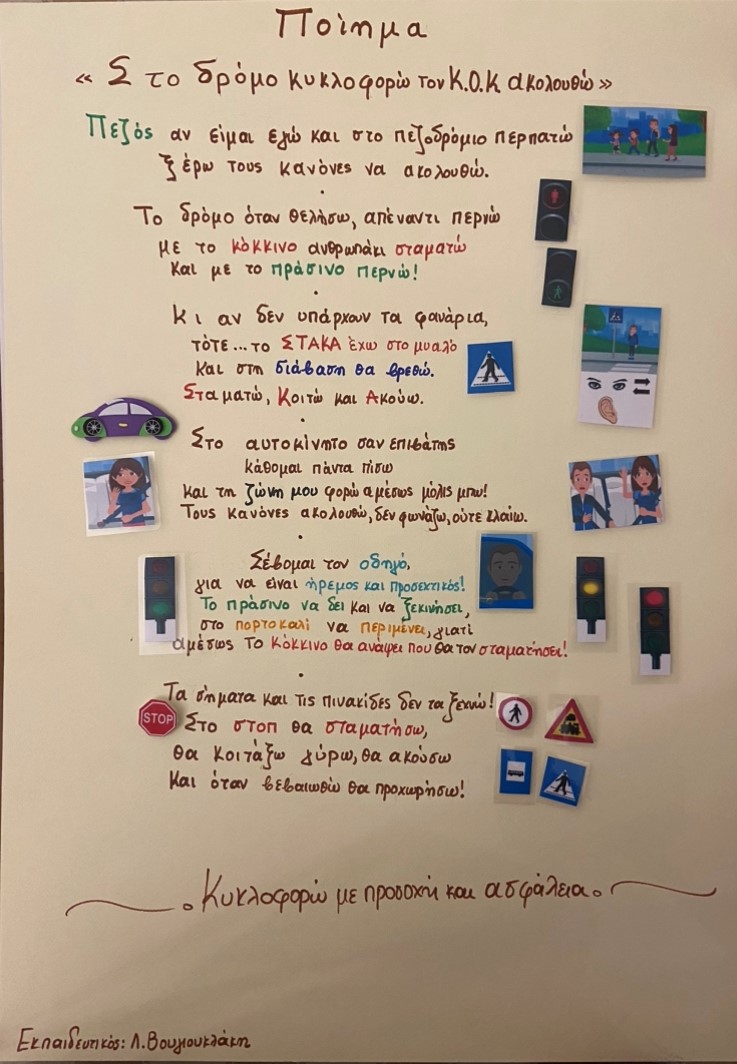 Ποίημα
« Στο δρόμο κυκλοφορώ τον Κ.Ο.Κ ακολουθώ »
Πεζός αν είμαι εγώ και στο πεζοδρόμιο περπατώ
ξέρω τους κανόνες να ακολουθώ.
Το δρόμο όταν θελήσω, απέναντι περνώ
με το κόκκινο ανθρωπάκι σταματώ
και με το πράσινο περνώ!
Κι αν δεν υπάρχουν τα φανάρια,
τότε... το ΣΤΑΚΑ έχω στο μυαλό
και στη διάβαση θα βρεθώ.
Σταματώ, Κοιτώ και Ακούω.
Στο αυτοκίνητο σαν επιβάτης
κάθομαι πάντα πίσω
και τη ζώνη μου φορώ αμέσως μόλις μπω!
Τους κανόνες ακολουθώ, δεν φωνάζω, ούτε κλαίω.
Σέβομαι τον οδηγό,
για να είναι ήρεμος και προσεκτικός!
Το πράσινο να δει και να ξεκινήσει,
στο πορτοκαλί να περιμένει, γιατί
αμέσως το κόκκινο θα ανάψει που θα τον σταματήσει!
Τα σήματα και τις πινακίδες δεν τα ξεχνώ!
STOP
Στο στοπ θα σταματήσω,
θα κοιτάξω γύρω, θα ακούσω
και όταν βεβαιωθώ θα προχωρήσω!
Κυκλοφορώ με προσοχή και ασφάλεια.
Εκπαιδευτικός: Λ. Βουγιουκλάκη